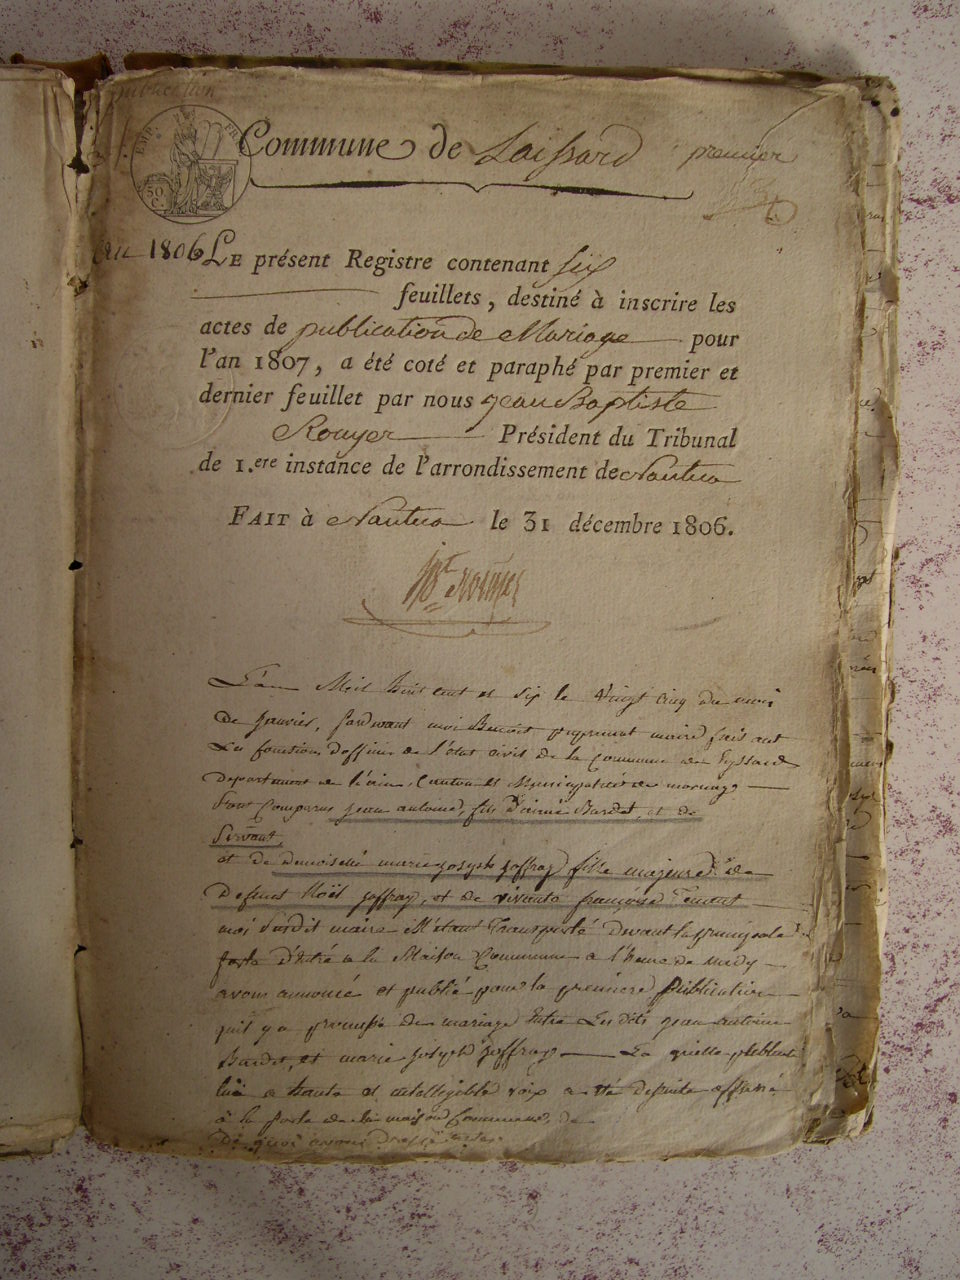 publication
EMP. FR.
50 C.
Commune de Laissard premier
an 1806 LE présent Registre contenant six
feuillets, destiné à inscrire les
actes de publication de Mariage pour
l'an 1807, a été coté et paraphé par premier et
dernier feuillet par nous jean Baptiste
Rouyer Président du Tribunal
de 1.ere instance de l'arrondissement de Nantua
FAIT à Nantua le 31 décembre 1806.
JBte Rouyer
L'an Mil huit cent et six le vingt cinq du mois
de janvier, pardevant moi Benoit maire faisant
Les fonctions d'officier de l'état civil de la Commune de
departement de l'ain Canton et Municipalité de
sont Comparus jean antoine, fils d'aimé Burdet, et de
Servant,
et de demoiselle marie joseph joffray fille majeure de
Defunt Noël joffray, et de vivante françoise
moi susdit maire M'étant Transporté Devant la principale
porte d'entré de la Maison Commune a l'heure de midy
avons annoncé et publié pour la premiere Publication
quil y a promesse de mariage Entre Les dits jean antoine
Burdet, et marie joseph joffray La quelle
lüe a haute et intelligible voix a été depuite affiché
à la porte de la maison Commune, de
De quoi avons dressé acte.